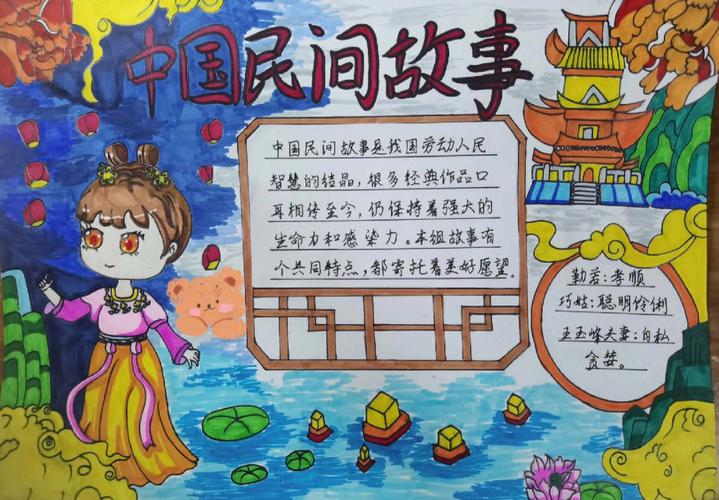 中国民间故事
中国民间故事是我国劳动人民
智慧的结晶，很多经典作品口
耳相传至今，仍保持着强大的
生命力和感染力。本组故事有
个共同特点，都寄托着美好愿望。
勤若：孝顺
巧姑：聪明伶俐
王玉峰夫妻：自私
贪婪。